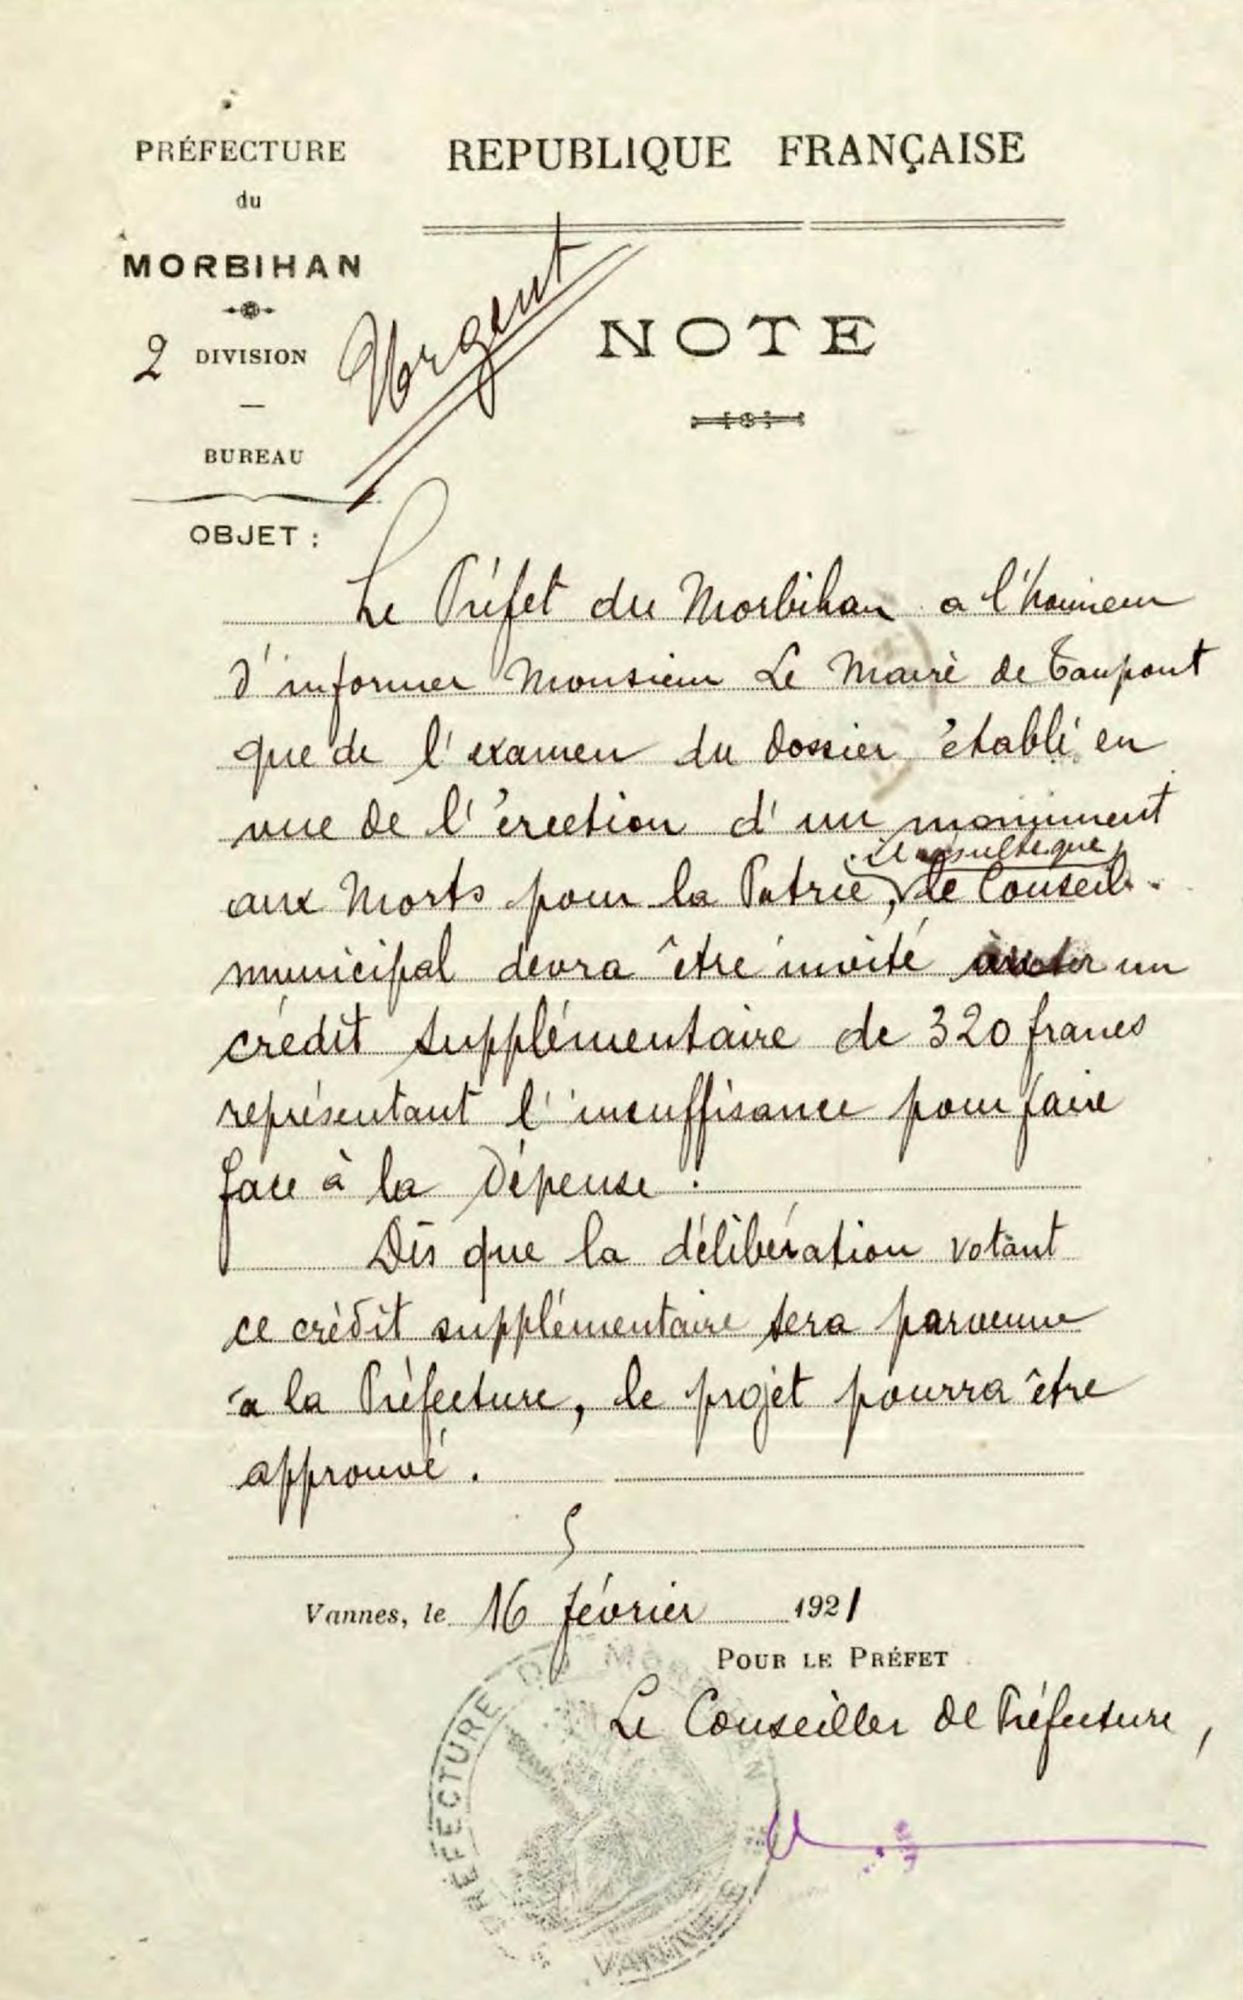 PRÉFECTURE
du
MORBIHAN
2 DIVISION
BUREAU
OBJET :
REPUBLIQUE FRANÇAISE
Urgent
NOTE
Le Préfet du Morbihan a l'honneur
d'informer Monsieur Le Maire de Taupont
que de l'examen du dossier établi en
vue de l'érection d'un monument
il résulte que
aux Morts pour la Patrie, le Conseil
municipal devra être invité à voter un
crédit supplémentaire de 320 francs
représentant l'insuffisance pour faire
face à la dépense.
Dès que la délibération votant
ce crédit supplémentaire sera parvenue
à la Préfecture, le projet pourra être
approuvé.
Vannes, le 16 février 1921
POUR LE PRÉFET
Le Conseiller de Préfecture,
PRÉFECTURE DU MORBIHAN